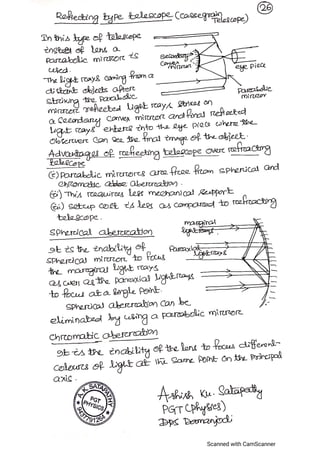 26
Reflecting type telescope (Cassegrain Telescope)
In this type of telescope
instead of lens a
parabolic mirror is
used.
Secondary
Convex
mirror
eye piece
Parabolic
mirror
The light rays coming from a
distant objects after
striking the Parabolic
mirror reflected light rays strikes on
a Secondary Convex mirror and final reflected
light rays enters into the eye piece where the
observer can see the final image of the object.
Advantages of reflecting telescope over refracting
telescope
(i) Parabolic mirrors are free from spherical and
chromatic aberration.
(ii) This requires less mechanical support
(iii) setup cost is less as compared to refracting
telescope.
Spherical aberration
It is the inability of
spherical mirror to focus
the marginal light rays
as well as the paraxial light rays
to focus at a single Point.
marginal
light rays
Paraxial
light rays
Spherical aberration can be
eliminated by using a parabolic mirror
Chromatic aberration
It is the inability of the lens to focus different-
colours of light at the same Point on the Principal
axis.
A.K. SATAPATHY
PGT
PHYSICS
Ashish Ku. Satapathy
PGT (Physics)
DPS Damanjodi
Scanned with CamScanner